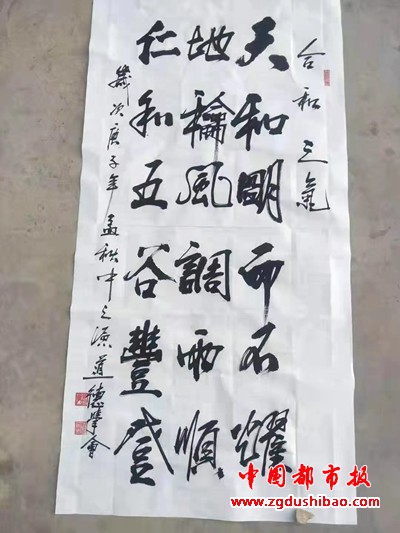 合和之氣
天和明而不耀
地風調雨順
仁和五谷豐登
歲次庚子年孟秋中之源道德學會
中国都市报
www.zgdushibao.com